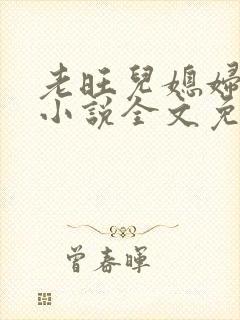 老旺兒媳婦
小說全文免
曾春暉